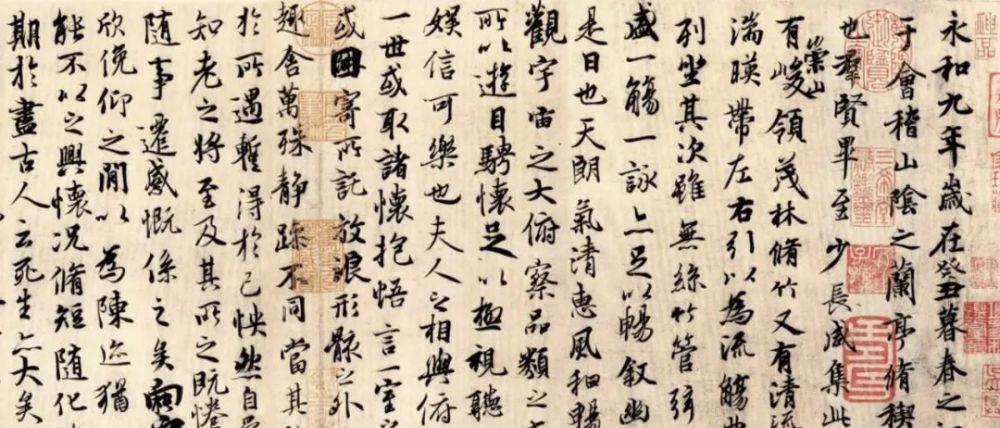 永和九年歲在癸丑暮春之初
于會稽山陰之蘭亭脩稧
也羣賢畢至少長咸集此
有崇山峻領茂林脩竹又有清流
湍暎帶左右引以為流觴
列坐其次雖無絲竹管弦
盛一觴一詠亦足以暢敘幽
是日也天朗氣清惠風和暢
觀宇宙之大俯察品類之
所以遊目騁懷足以極視聽
娛信可樂也夫人之相與俯
一世或取諸懷抱悟言一室之
或因寄所託放浪形骸之外
趣舍萬殊靜躁不同當其
於所遇暫得於己怏然自
知老之將至及其所之既惓
隨事遷感慨係之矣向
欣俛仰之閒以為陳迹猶
能不以之興懷況脩短隨化
期於盡古人云死生亦大矣